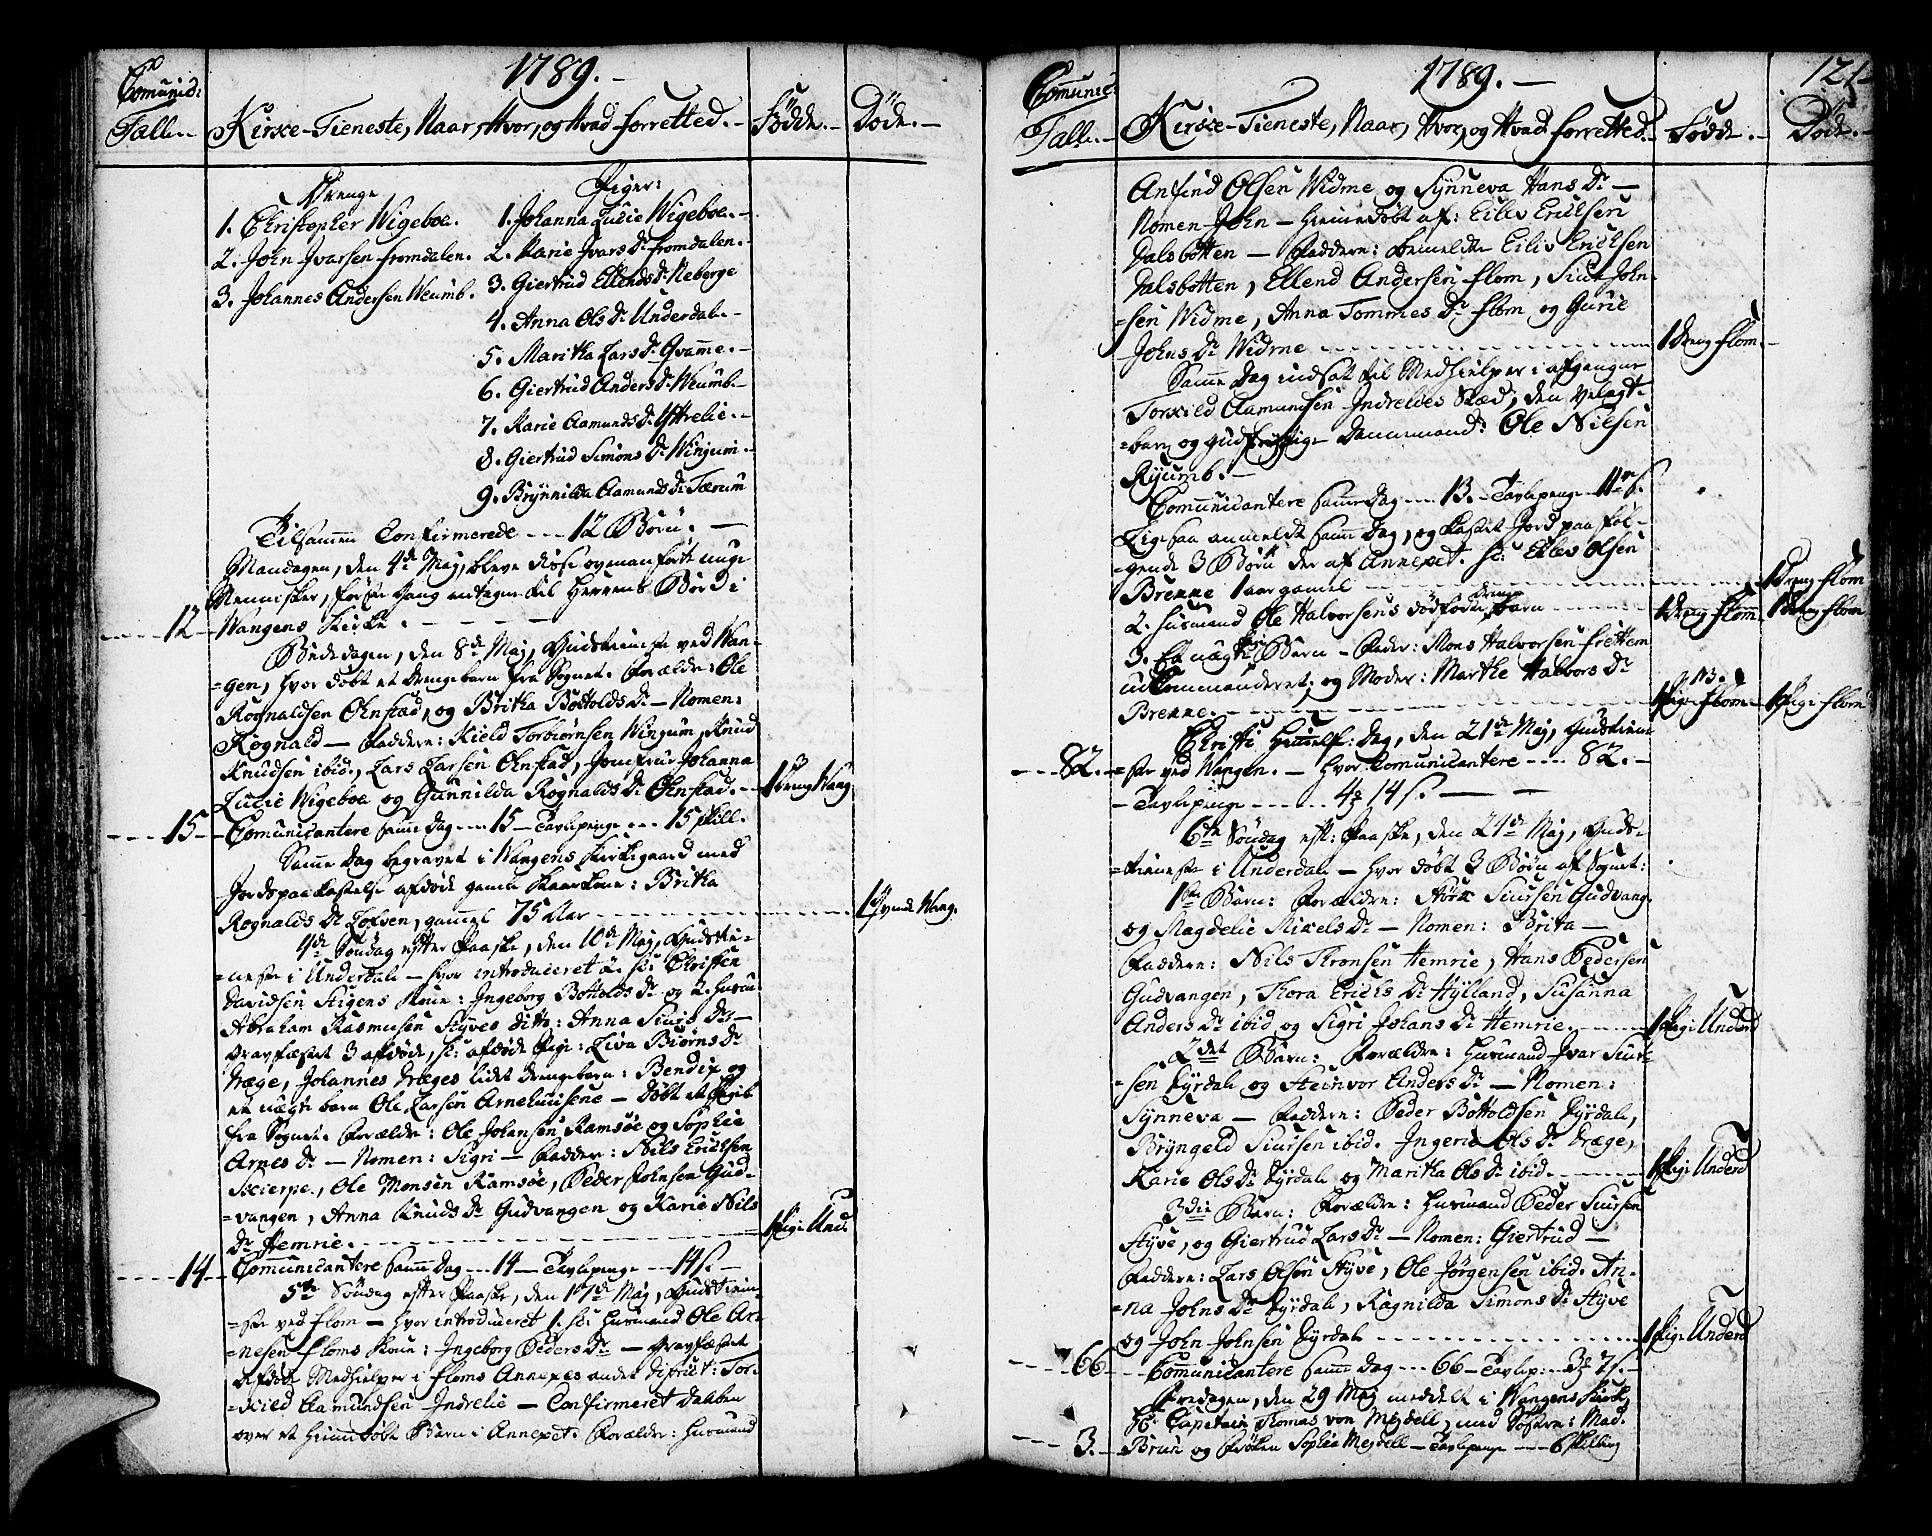 1789.
Comunic:
Tall.
Kirke-Tieneste, Naar, Hvor, og Hvad forretted.
Födde.
Döde.
Drenge
1. Christopher Wigeboe.
2. John Ivarsen fromdalen.
3. Johannes Andersen Weumb.
Piger:
1. Johanna Lucie Wigeboe.
2. Karie Ivars Dr fromdalen.
3. Giertrud Ellends Dr Neberge
4. Anna Ols Dr Underdal.
5. Maritha Lars Dr Qvamme.
6. Giertrud Anders Dr Weumb.
7. Karie Aamunds Dr Ytrelie.
8. Giertrud Simons Dr Winjum.
9. Brynnilda Aamunds Dr Tærum
Tilsammen Confirmerede --- 12 Börn.
Mandagen, den 4de Maj, bleve disse ovenanførte unge
Mennisker, første Gang antagne til Herrens Bord i
12 Wangens Kirke.
Bededagen, den 8de Maj, Gudstieneste ved Wan-
=gen, hvor døbt et drengebarn fra Sognet. Forældre: Ole
Rognaldsen Ohnstad, og Britha Bottolds Dr - Nomen:
Rognald - Faddere: Kield Torbiørnsen Wingum, Knud
Knudsen ibid., Lars Larsen Ohnstad, Jomfrue Johanna
Lucie Wigeboe og Gunnilda Rognalds Dr Ohnstad. - 1 Dreng Wang
15 - Comunicantere samme dag --- 15 - Tavlepenge --- 15 skill.
Samme Dag begravet i Wangens Kirkegaard med
Jordspaakastelse afdøde gamle : Britha
Rognalds Dr Lofven, gammel 75 Aar --- 1 Qvinde Wang.
4de Søndag efter Paaske, den 10de Maj, Gudstie-
=neste i Underdal - hvor introduceret 2. sc: Christen
Davidsen Stigens Kone: Ingeborg Bottolds Dr og 2. Husm.
Abraham Rasmusen Styves ditto: Anna Siurs Dr -
Gravfæstet 3 afdøde, sc: afdøde Pige: Liva Biørns Dr
Dræge, Johannes Dræges lidet drengebarn: Bendix og
et uægte barn Ole Larsen Arnehuusene - Døbt et Pigeb.
fra Sognet. Forældre: Ole Johansen Ramsøe og Sophie
Arnes Dr - Nomen: Sigri - Faddere: Nils Erichsen
Skierpe, Ole Monsen Ramsøe, Peder Johnsen Gud-
=vangen, Anna Knuds Dr Gudvangen og Karie Nils
Dr Hemrie. --- 1 Pige Und.
14 - Comunicantere samme Dag --- 14 - Tavlepenge --- 14 s. -
5te Søndag efter Paaske, den 17de Maj, Gudstiene-
=ste ved flom - hvor introduceret 1. sc: Husmand Ole Ar-
=nesen floms Kone: Ingeborg Peders Dr - Gravfæstet
Afdøde Medhielper i floms Annexes andet district: Tor-
=kield Aamundsen Indrelie - Confirmeret daaben
over et hiemmedøbt Barn i Annexet. Forældre: Husmand
1789.
121
Comunic:
Tall.
Kirke-Tieneste, Naar, Hvor, og Hvad forretted.
Födde.
Döde.
Anfind Olsen Widme og Synneva Hans Dr -
Nomen John - hiemmedøbt af: Eilev Erichsen
Dalsbotten - Faddere: bemeldte Eiliv Erichsen
Dalsbotten, Ellend Andersen flom, Siur John-
=sen Widme, Anna Tommes Dr flom og Gurie
Johns Dr Widme --- 1 Dreng flom.
Samme Dag indsatt til Medhielper i afgangne
Torkild Aamundsen Indrelies Stæd, den velagt-
=bare og gudfrygtige Dannemand: Ole Nilsen
Ryumb.
Comunicantere samme dag --- 13. - Tavlepenge - 11 s.
Ligesaa anmeldt samme Dag, og kastet Jord paa føl-
gende 3 Børn der af Annexet. sc: Eilev Olsen
Brekke 1 aar gamel --- 1 Dreng flom
2. Husmand Ole Halvorsens dødfødte drenge barn --- 1 Dreng flom 1 Dreng flom
3. Et uægte Barn - Fader: Mons Halvorsen frettem
udkommanderet, og Moder: Marthe Halvors Dr NB.
Brekke. --- 1 Pige flom 1 Pige flom
Christi Himmelf: Dag, den 21de Maj, Gudstiene-
82. =ste ved Wangen. - hvor Comunicantere --- 82. -
- Tavlepenge --- 4 14 s. -
6te Søndag eft: Paaske, den 24de Maj, Guds-
=tieneste i Underdal - hvor døbt 3 Børn af Sognet:
1ste Barn: Forældre: Siursen Gudvang.
og Magdelie Mikels Dr - Nomen: Brita -
Faddere: Nils Tronsen Hemrie, Hans Pedersen
Gudvangen, Thora Erichs Dr Hylland, Susanna
Anders Dr ibid og Sigri Johans Dr Hemrie --- 1 Pige Underd
2det Barn: Forældre: Husmand Ivar Siur-
=sen Dyrdal og Steinvor Anders Dr - Nomen:
Synneva - Faddere: Peder Bottoldsen Dyrdal,
Bryngeld Siursen ibid. Ingerie Ols Dr Dræge,
Karie Ols Dr Dyrdal og Maritha Ols Dr ibid. --- 1 Pige Underd
3die Barn: Forældre: Husmand Peder Siursen
Styve, og Giertrud Lars Dr - Nomen: Giertrud -
Faddere: Lars Olsen Styve, Ole Jørgensen ibid. An-
=na Johns Dr Dyrdal, Ragnilda Simons Dr Styve
og John Johnsen Dyrdal --- 1 Pige Underd
66 - Comunicantere samme Dag --- 66 - Tavlep: - 3 7 s. -
Fredagen, den 29 Maj meddelt i Wangens Kirke
Hr. Capitain Thomas von Meydell, med Søstere: Mad.
3. Brun og Frøken Sophia Meydell - Tavlepenge --- 6 skilling